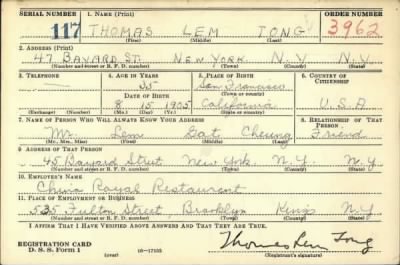 SERIAL NUMBER 1. NAME (Print) ORDER NUMBER
117 THOMAS LEM TONG 3962
(First) (Middle) (Last)
2. ADDRESS (Print)
47 BAYARD ST. NEW YORK N.Y. N.Y.
(Number and street or R. F. D. number) (Town) (County) (State)
3. TELEPHONE 4. AGE IN YEARS 5. PLACE OF BIRTH 6. COUNTRY OF CITIZENSHIP
35 San Francisco
DATE OF BIRTH (Town or county)
8 15 1905 California U.S.A
(Exchange) (Number) (Mo.) (Day) (Yr.) (State or country)
7. NAME OF PERSON WHO WILL ALWAYS KNOW YOUR ADDRESS 8. RELATIONSHIP OF THAT PERSON
Mr. Lem Gat Cheung Friend
(Mr., Mrs., Miss) (First) (Middle) (Last)
9. ADDRESS OF THAT PERSON
45 Bayard Street New York. N.Y. N.Y
(Number and street or R. F. D. number) (Town) (County) (State)
10. EMPLOYER'S NAME
China Royal Restaurant
11. PLACE OF EMPLOYMENT OR BUSINESS
535 Fulton Street, Brooklyn Kings N.Y
(Number and street or R. F. D. number) (Town) (County) (State)
I AFFIRM THAT I HAVE VERIFIED ABOVE ANSWERS AND THAT THEY ARE TRUE.
REGISTRATION CARD Thomas Lem Tong
D. S. S. Form 1 (over) 16-17105 (Registrant's signature)